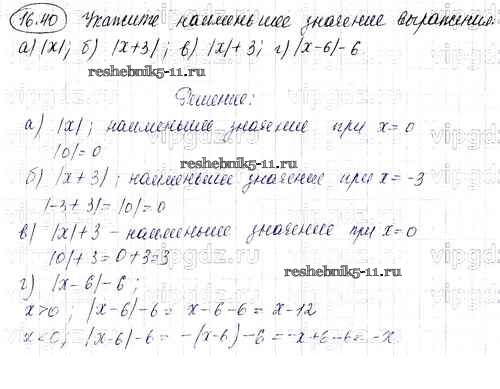 16.40 Укажите наименьшее значение выражения:
а) |x|; б) |x+3|; в) |x|+3; г) |x-6|-6
reshebnik5-11.ru
Решение:
а) |x|; наименьшее значение при x=0
|0|=0
reshebnik5-11.ru
б) |x+3|; наименьшее значение при x=-3
|-3+3|=|0|=0
в) |x|+3 - наименьшее значение при x=0
|0|+3=0+3=3
reshebnik5-11.ru
г) |x-6|-6;
x>0; |x-6|-6=x-6-6=x-12
x<0; |x-6|-6=-(x-6)-6=-x+6-6=-x
vipgdz.ru
vipgdz.ru
vipgdz.ru